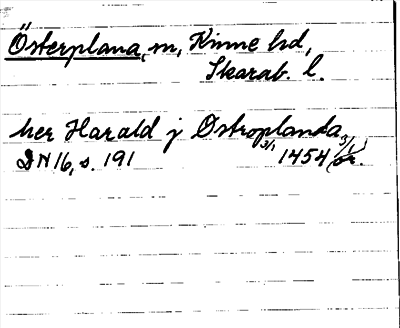 Österplana, sn, Kinne hd,
Skarab. l.
her Harald j Ostroplanda
DN 16, s. 191 3/1 1454 or.